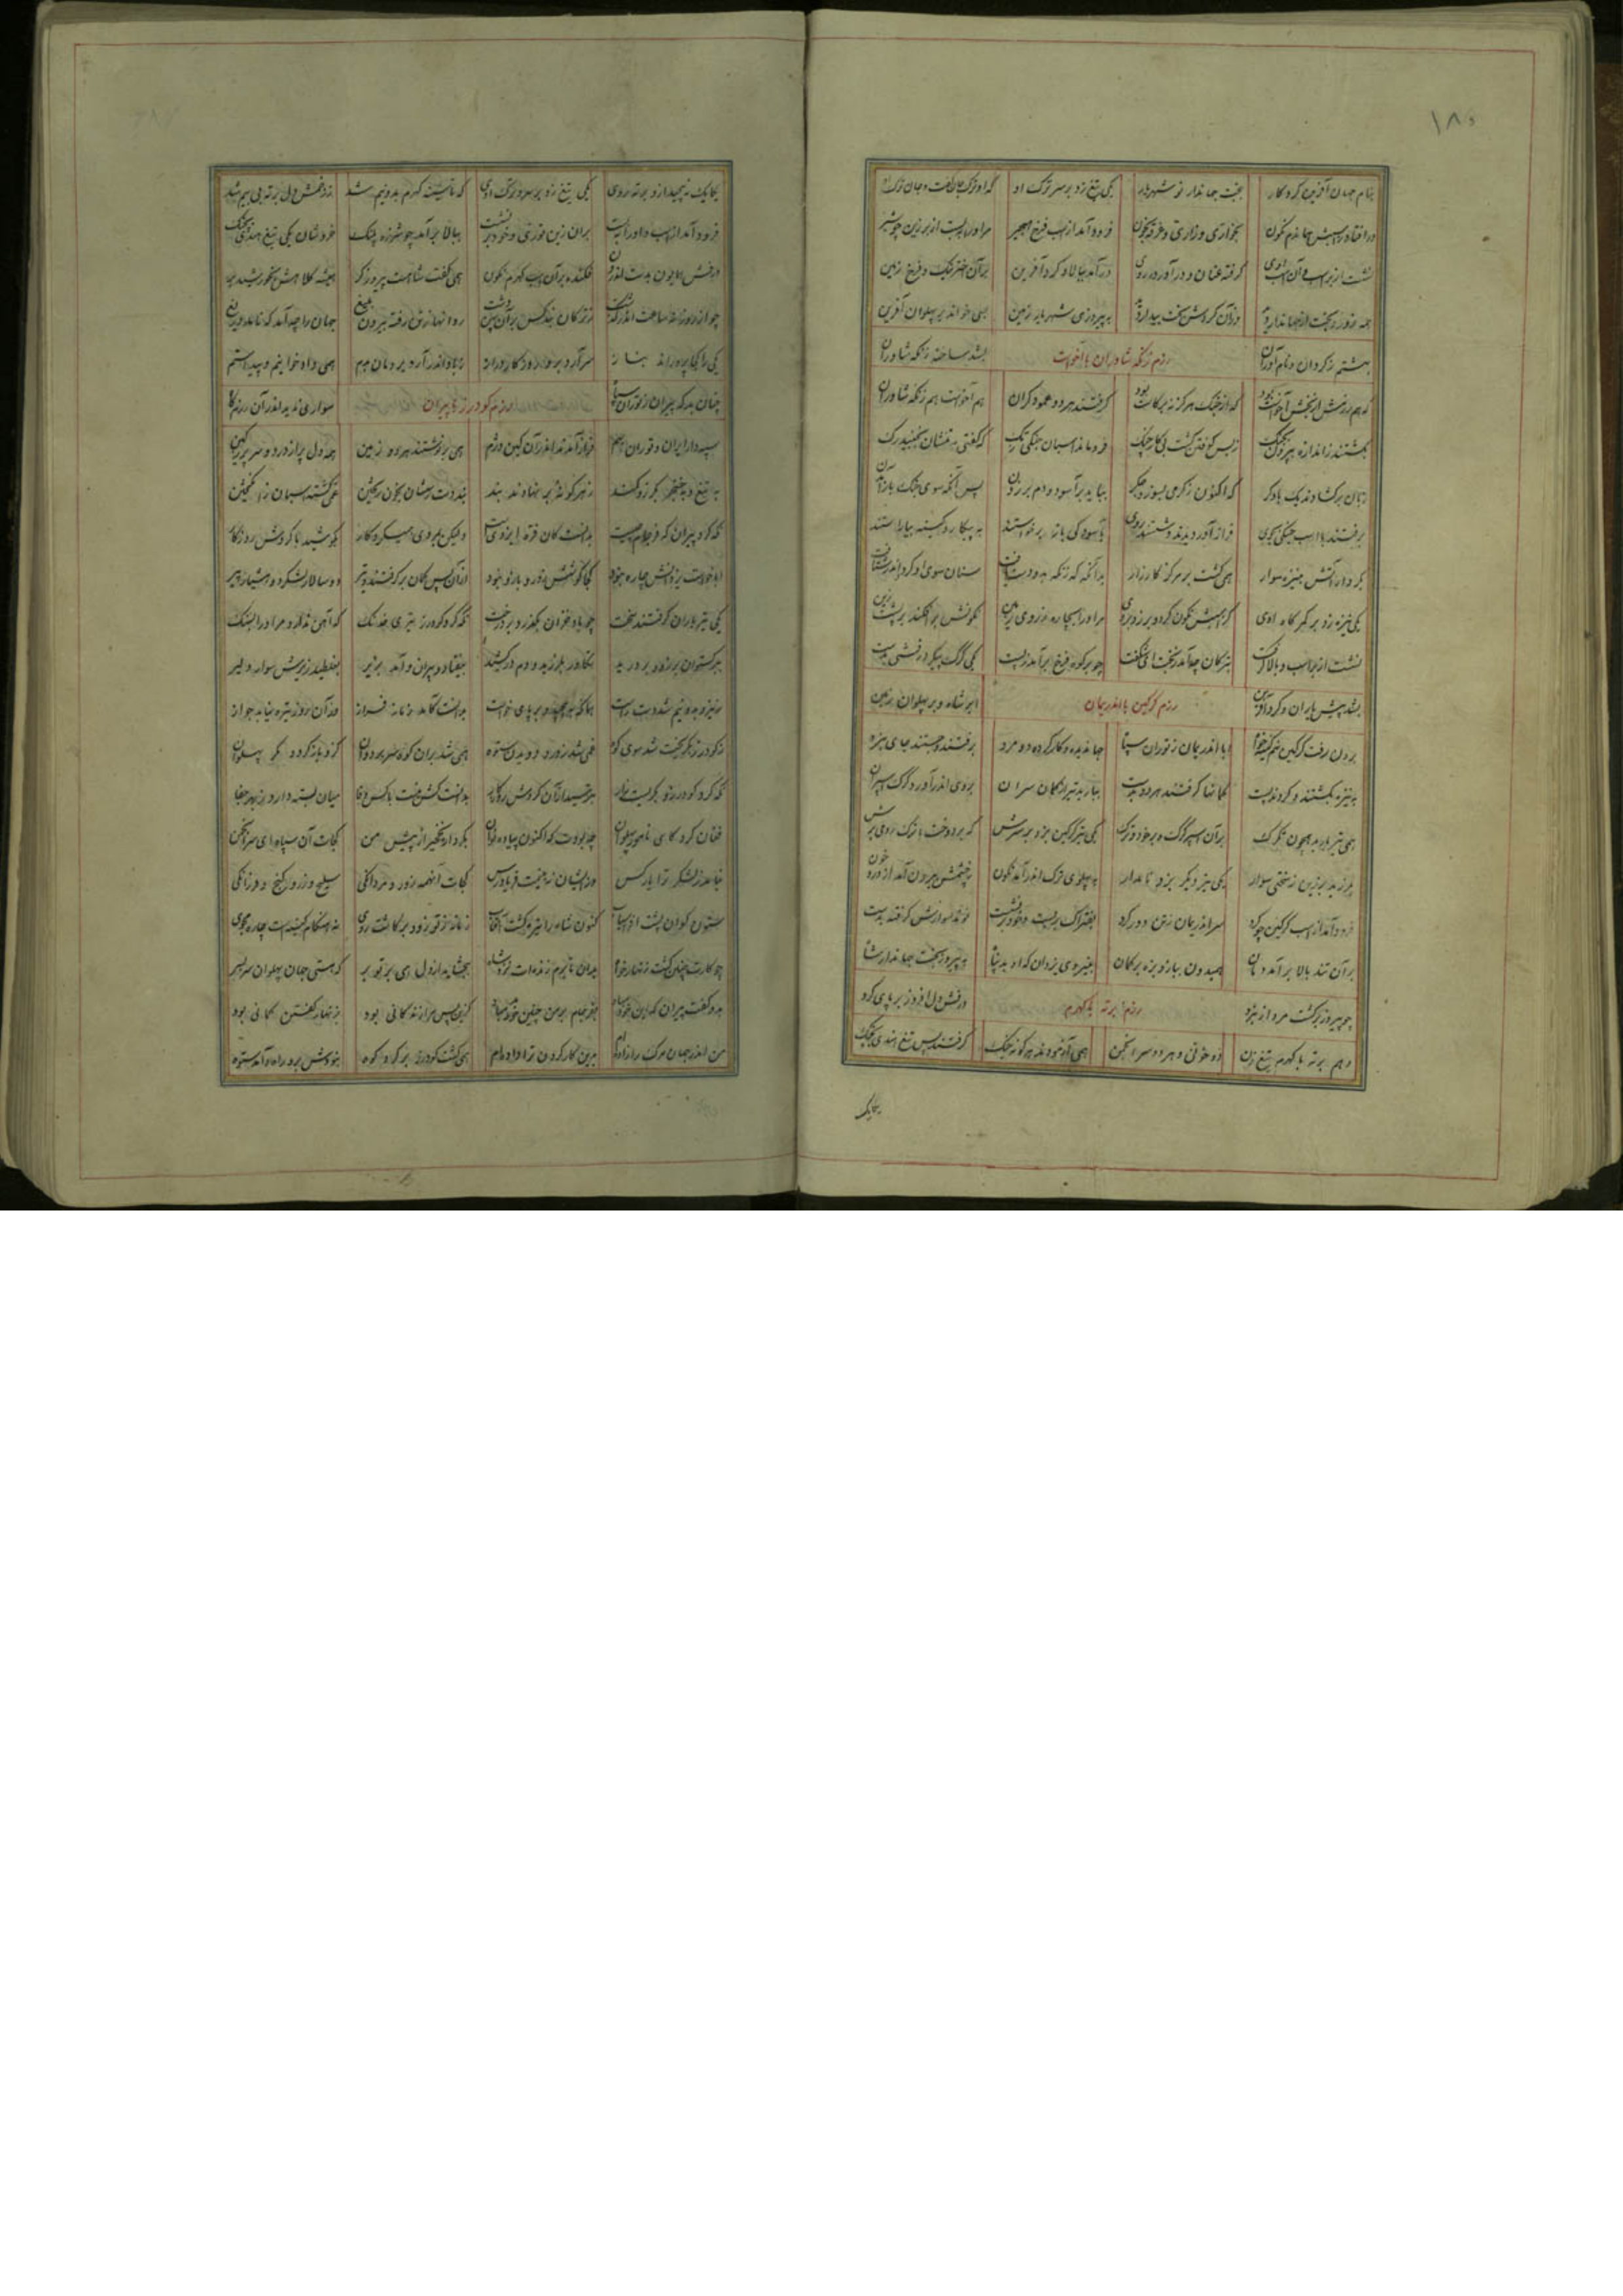 ۱۸۵
بنام جهان آفرین کردگار بخت جهاندار نو شهریار یکی تیغ زد بر سر ترک اوی که او ترک جان گفت و جان ترک اوی
درافتاد ز اسپش هماندم نگون بخواری و زاری و غرقه بخون فرود آمد از اسب فرخ هجیر مر او را ببست از بر زین چو شیر
نشست از بر اسب و آن اسب اوی گرفته عنان و درآورد روی برآمد ببالا و کرد آفرین بر آن اختر نیک و فرخ زمین
همه زور و بخت از جهاندار دید وز آن گردش بخت بیدار دید به پیروزی شهریار زمین بسی خواند بر پهلوان آفرین
بهشتم ز گردان و نام آوران رزم زنگه شاوران با اخواست بشد ساخته زنگه شاوران
که هم رزمش از بخش اخواست بود که از جنگ هرگز نه بر کاست بود گرفتند هر دو عمود گران هم اخواست هم زنگه شاوران
بگشتند ز اندازه بیرون بجنگ ز بس کوفتن گشت بی کار چنگ فرو ماند اسبان جنگی ز تک که گفتی بتنشان نجنبید رگ
زبان برگشادند یک با دگر که اکنون ز گرمی بسوزد جگر بباید برآسود و دم بر زدن پس آنگه سوی جنگ باز آمدن
برفتند با اسب جنگی بجوی فراز آوریدند و شستند روی بآسودگی باز برخواستند به پیکار و کینه بیاراستند
بکردار آتش بنیزه سوار همی گشت بر مرکز کارزار بدانگه که زنگه برو دست یافت سنان سوی او کرد و اندر شتافت
یکی نیزه زد بر کمرگاه اوی کز اسبش نگون کرد و بر زد بروی مر او را بیچاره ز روی زمین نگونش برافکند بر پشت زین
نشست از بر اسب و بالا گرفت بترکان چه آمد ز بخت ای شگفت چو بر کوه فرخ برآمد ز پست یکی گرگ پیکر درفشی بدست
بشد پیش یاران و کرد آفرین رزم گرگین با اندریمان ابر شاه و بر پهلوان زمین
برون رفت گرگین نهم کینه خواه ابا اندریمان ز توران سپاه جهاندیده و کار کرده دو مرد برفتند و جستند جای نبرد
به نیزه بگشتند و کردند پست کمانها گرفتند هر دو بدست ببارید تیر از کمان سران بروی اندر آورد گرگ اسپران
همی تیر بارید همچون تگرگ بر آن اسپر گرگ و بر خود و ترگ یکی تیر گرگین بزد بر سرش که بردوخت با ترک رومی برش
بلرزید بر زین ز سختی سوار یکی تیر دیگر بزد نامدار به پهلوی ترک اندر آمد نگون ز چشمش برون آمد از درد خون
فرود آمد از اسب گرگین چو گرد سر اندریمان ز تن دور کرد بفتراک بربست و خود برنشست نوند سوارش گرفته بدست
بر آن تند بالا برآمد دمان همیدون ببازو بزه بر کمان به نیروی یزدان که او بد پناه به پیروز بخت جهاندار شاه
چو پیروز برگشت مرد از نبرد رزم برته با کهرم درفش دل افروز بر پای کرد
دهم برته با کهرم تیغ زن دو خونی و هر دو سر انجمن همی آزمودند هر گونه جنگ گرفتند پس تیغ هندی بچنگ
یکایک
یکایک بپیچید ازو برته روی یکی تیغ زد بر سر و ترگ اوی که تا سینه کهرم بدونیم شد ز زخمش دل برته بی بیم شد
فرود آمد از اسب و او را ببست بران زین توزی و خود برنشست ببالا برآمد چو شرزه پلنگ خروشان یکی تیغ هندی بچنگ
درفش همایون بدست اندرون فکنده بر آن اسب کهرم نگون همی گفت شاهست پیروزگر همیشه کلاهش بخورشید بر
چو از روز نه ساعت اندر گذشت ز ترکان نبد کس بر آن پهن دشت روانها ز تن رفته بیرون بتیغ جهان را چه آمد که نامد دریغ
یکی را کجا پروراند بناز سر آرد برو روزگار دراز زباد اندر آرد برد مان بدم همی داد خوانیم و پیدا ستم
چنان بد که پیران ز توران سپاه رزم گودرز با پیران سواری ندید اندر آن رزمگاه
سپهدار ایران و توران بهم فراز آمدند اندر آن کین دژم همی بر نوشتند هر دو زمین همه دل پر از درد و سر پر ز کین
به تیغ و به خنجر بگرز و کمند ز هر گونه بر نهادند بند
نگه کرد پیران که فرجام چیست بدانست کان گردش ایزدیست ولیکن بمردی همیکرد کار بکوشید با گردش روزگار
ابا خواست یزدانش چاره نبود کجا کوشش و زور و یارا نبود از آن پس کمان برگرفتند و تیر دو سالار لشکر دو هشیار پیر
یکی تیر باران گرفتند سخت چو باد خزان بگذرد بر درخت نگه کرد گودرز تیری خدنگ که آهن ندارد مر او را نه سنگ
ببرگستوان بر زد و بر درید تکاور بلرزید و دم درکشید بیفتاد و پیران درآمد بزیر بغلطید زیرش سوار دلیر
بدانست کآمد زمانه فراز وز آن روز تیره نیابد جواز
ز گودرز بگریخت شد سوی کوه غمی شد ز درد و دویدن ستوه همی شد بران کوه سر بر دوان کزو باز گردد مگر پهلوان
نگه کرد گودرز و بگریست زار بترسید از آن گردش روزگار بدانست کش نیست با کس وفا میان بسته دارد ز بهر جفا
فغان کرد کای نامور پهلوان چه بودت که اکنون پیاده دوان بکردار نخچیر از پیش من کجات آن سپاه ای سر انجمن
نیامد ز لشکر ترا یار کس وز ایشان نه بینمت فریادرس کجات آنهمه زور و مردانگی سلیح و زر و گنج و فرزانگی
ستون گوان پشت افراسیاب کنون شاه را تیره گشت آفتاب زمانه ز تو زود برگاشت روی نه هنگام کینست چاره مجوی
چو کارت چنین گشت زنهار خواه بدان تا برم زنده ات نزد شاه ببخشاید از دل همی بر تو بر که هستی جهان پهلوان سر بسر
بدو گفت پیران که این خود مباد بفرجام بر من چنین خود مباد کزین پس مرا زندگانی بود بزنهار گفتن گمانی بود
من اندر جهان مرگ را زاده ام بدین کار گردن ترا داده ام همی گشت گودرز بر گرد کوه نبودش برو راه و آمد ستوه